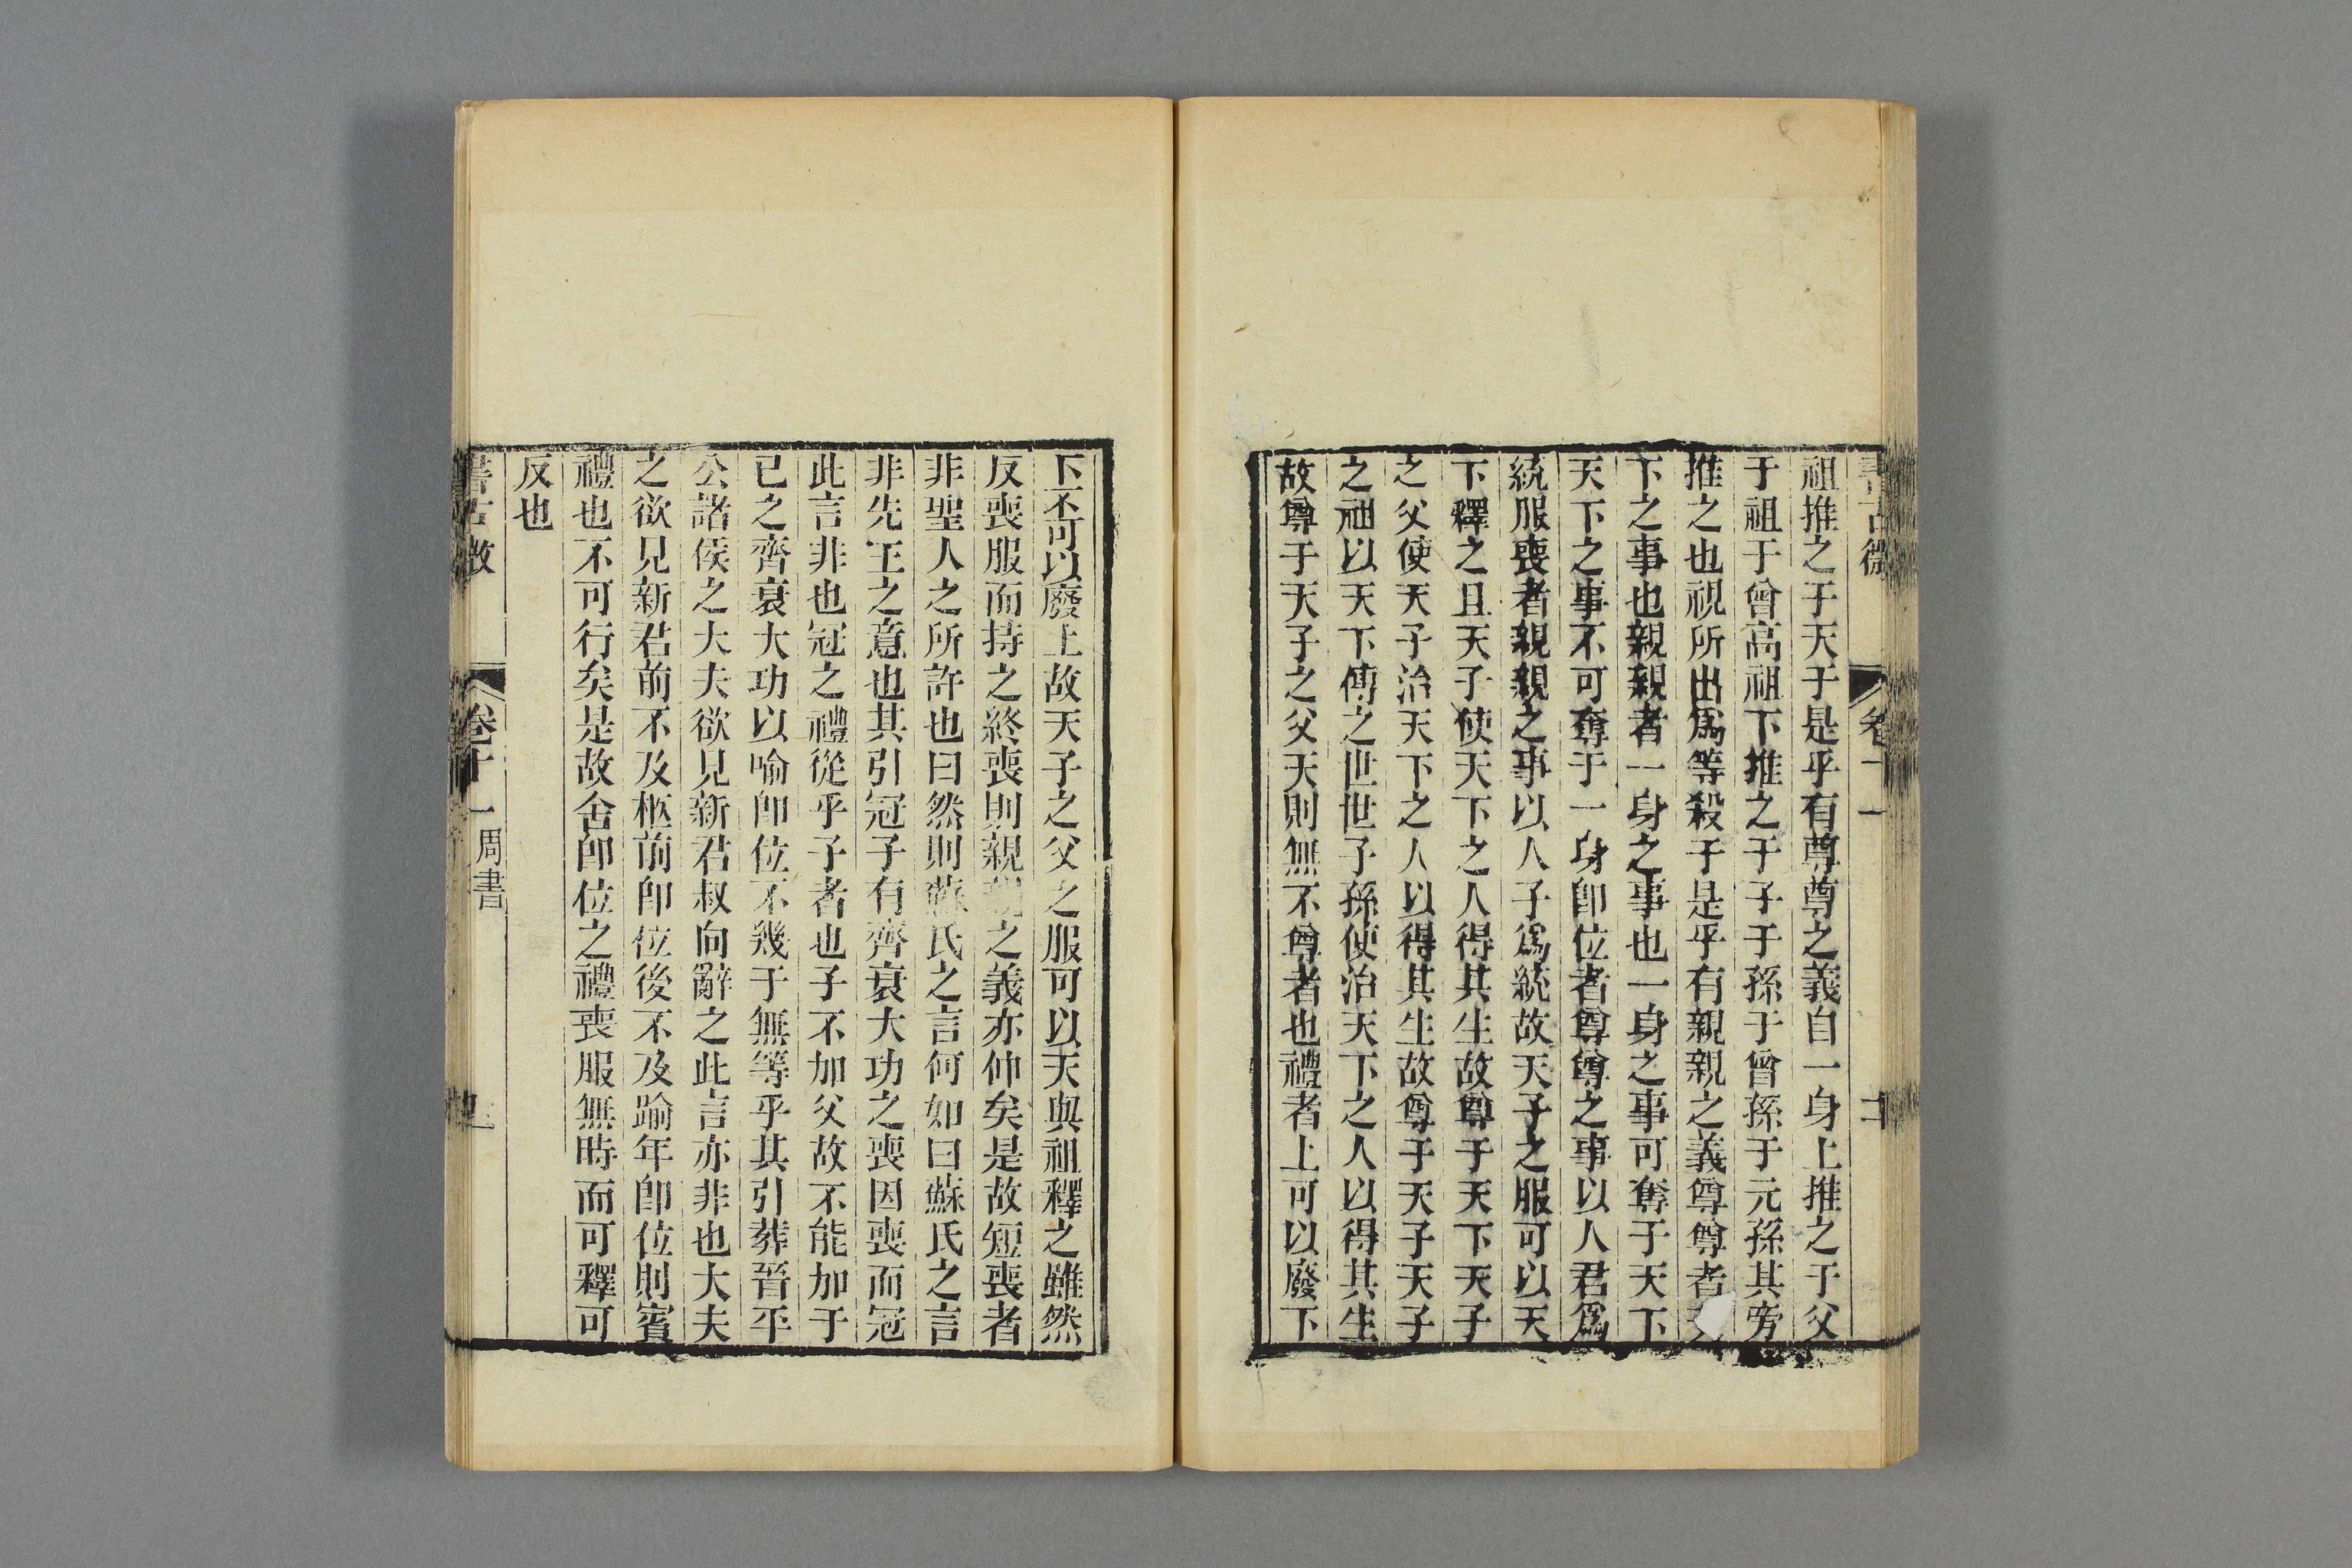 祖推之于天于是乎有尊尊之義自一身上推之于父
于祖于曾高祖下推之于子于孫于曾孫于元孫其旁
推之也視所出爲等殺于是乎有親親之義尊尊者天
下之事也親親者一身之事也一身之事可奪于天下
天下之事不可奪于一身卽位者尊尊之事以人君爲
統服喪者親親之事以人子爲統故天子之服可以天
下釋之且天子使天下之人得其生故尊于天下天子
之父使天子治天下之人以得其生故尊于天子天子
之祖以天下傳之世世子孫使治天下之人以得其生
故尊于天子之父天則無不尊者也禮者上可以廢下
下不可以廢上故天子之父之服可以天與祖釋之雖然
反喪服而持之終喪則親親之義亦伸矣是故短喪者
非聖人之所許也曰然則蘇氏之言何如曰蘇氏之言
非先王之意也其引冠子有齊衰大功之喪因喪而冠
此言非也冠之禮從乎子者也子不加父故不能加于
已之齊衰大功以喻卽位不幾于無等乎其引葬晉平
公諸侯之大夫欲見新君叔向辭之此言亦非也大夫
之欲見新君前不及柩前卽位後不及踰年卽位則賓
禮也不可行矣是故舍卽位之禮喪服無時而可釋可
反也
書古微
卷十一
周書